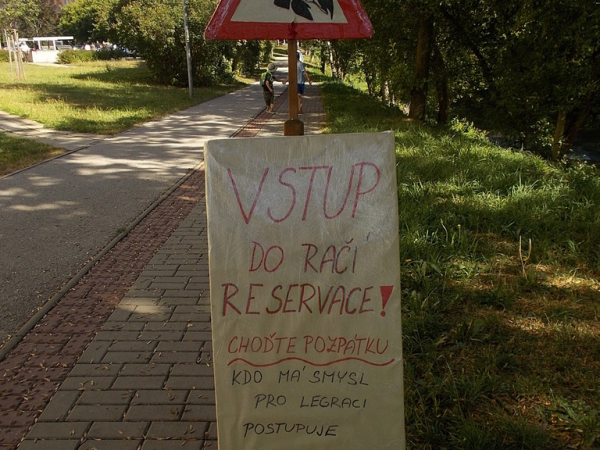 VSTUP
DO RAČÍ
RESERVACE!
CHOĎTE POZPÁTKU
KDO MÁ SMYSL
PRO LEGRACI
POSTUPUJE